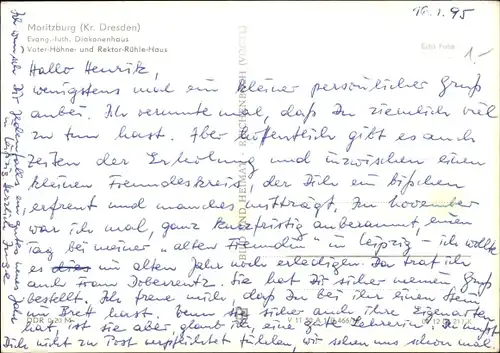 16.1.95
Moritzburg (Kr. Dresden)
Evang.-luth. Diakonenhaus
Vater-Höhne- und Rektor-Rühle-Haus
Echt Foto
1.-
Hallo Henrik,
wenigstens mal ein kleiner persönlicher Gruß
anbei. Ich vermute mal, daß Du ziemlich viel
zu tun hast. Aber hoffentlich gibt es auch
Zeiten der Erholung und inzwischen einen
kleinen Freundeskreis, der Dich ein bißchen
erfreut und manches mitträgt. Im November
war ich mal, ganz kurzfristig anberaumt, einen
Tag bei meiner "alten Freundin" in Leipzig – ich wollte
es dies im alten Jahr noch erledigen. Da traf ich
auch Frau Doberentz. Sie hat Dir sicher meinen Gruß
bestellt. Ich freue mich, daß Du bei ihr einen Stein
im Brett hast. Denn sie sicher auch ihre Eigenarten
hat, ist sie aber, glaub ich, eine gute Lehrerin. Du mußt
Dich nicht zu Post verpflichtet fühlen, wir sehen uns schon mal
in Leipzig. Herzlich
Ich wünsch Dir jedenfalls ein gutes neues Jahr
BILD UND HEIMAT REICHENBACH (VOGTL)
DDR 0,20 M
V 11 50 A 1/B 466/